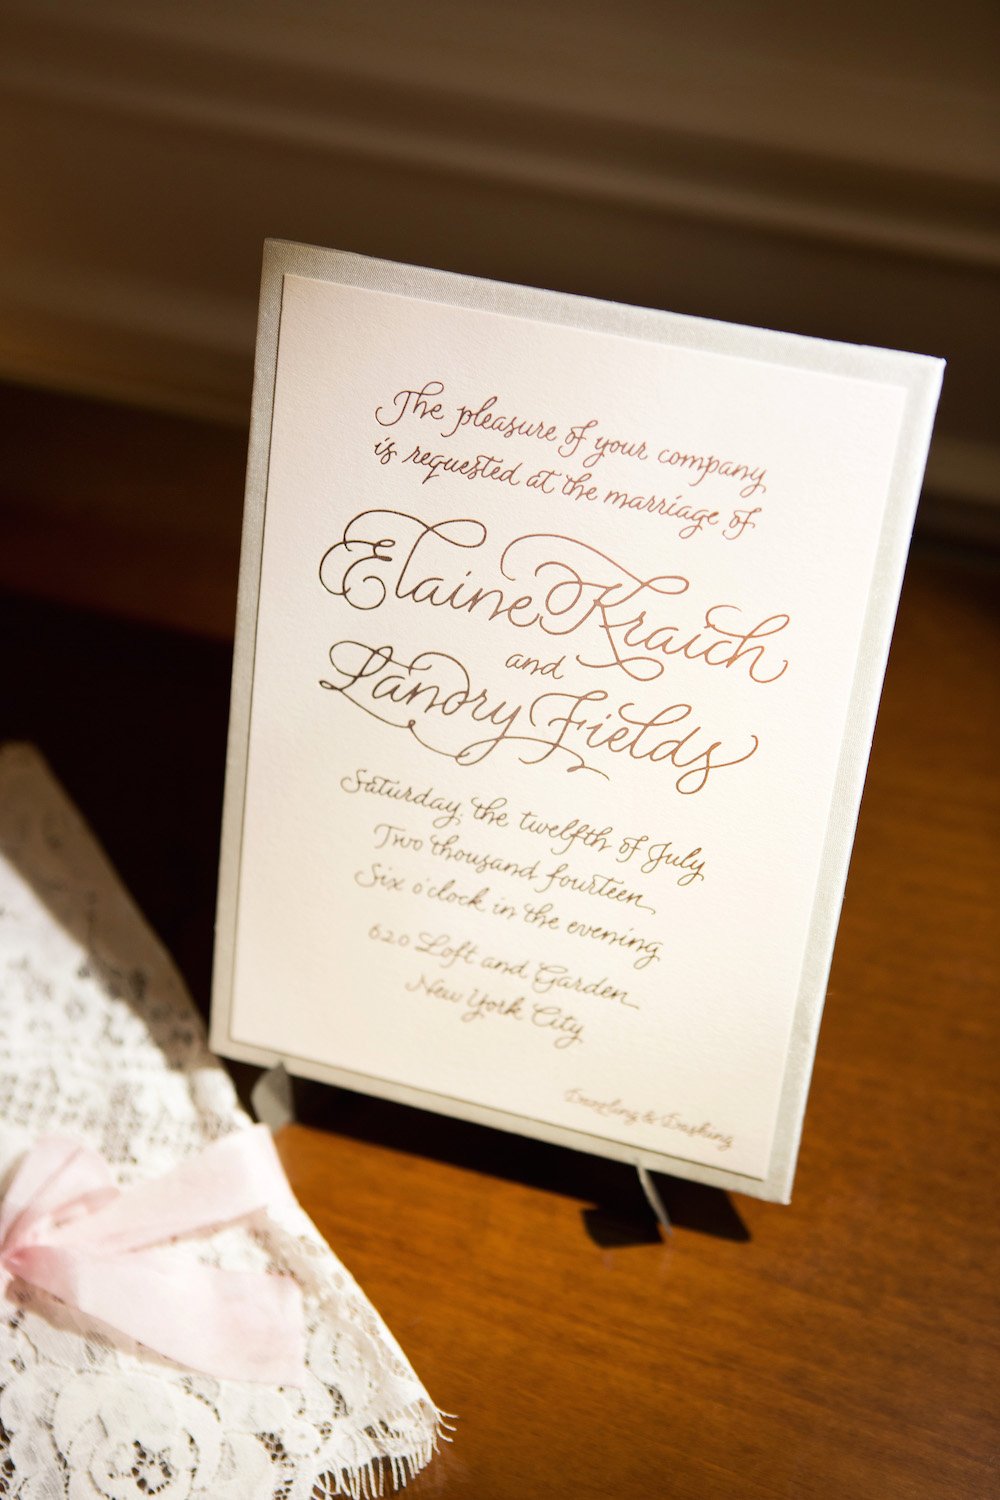 The pleasure of your company
is requested at the marriage of
Elaine Kraich
and
Landry Fields
Saturday, the twelfth of July
Two thousand fourteen
Six o'clock in the evening
620 Loft and Garden
New York City
Dazzling & Dashing